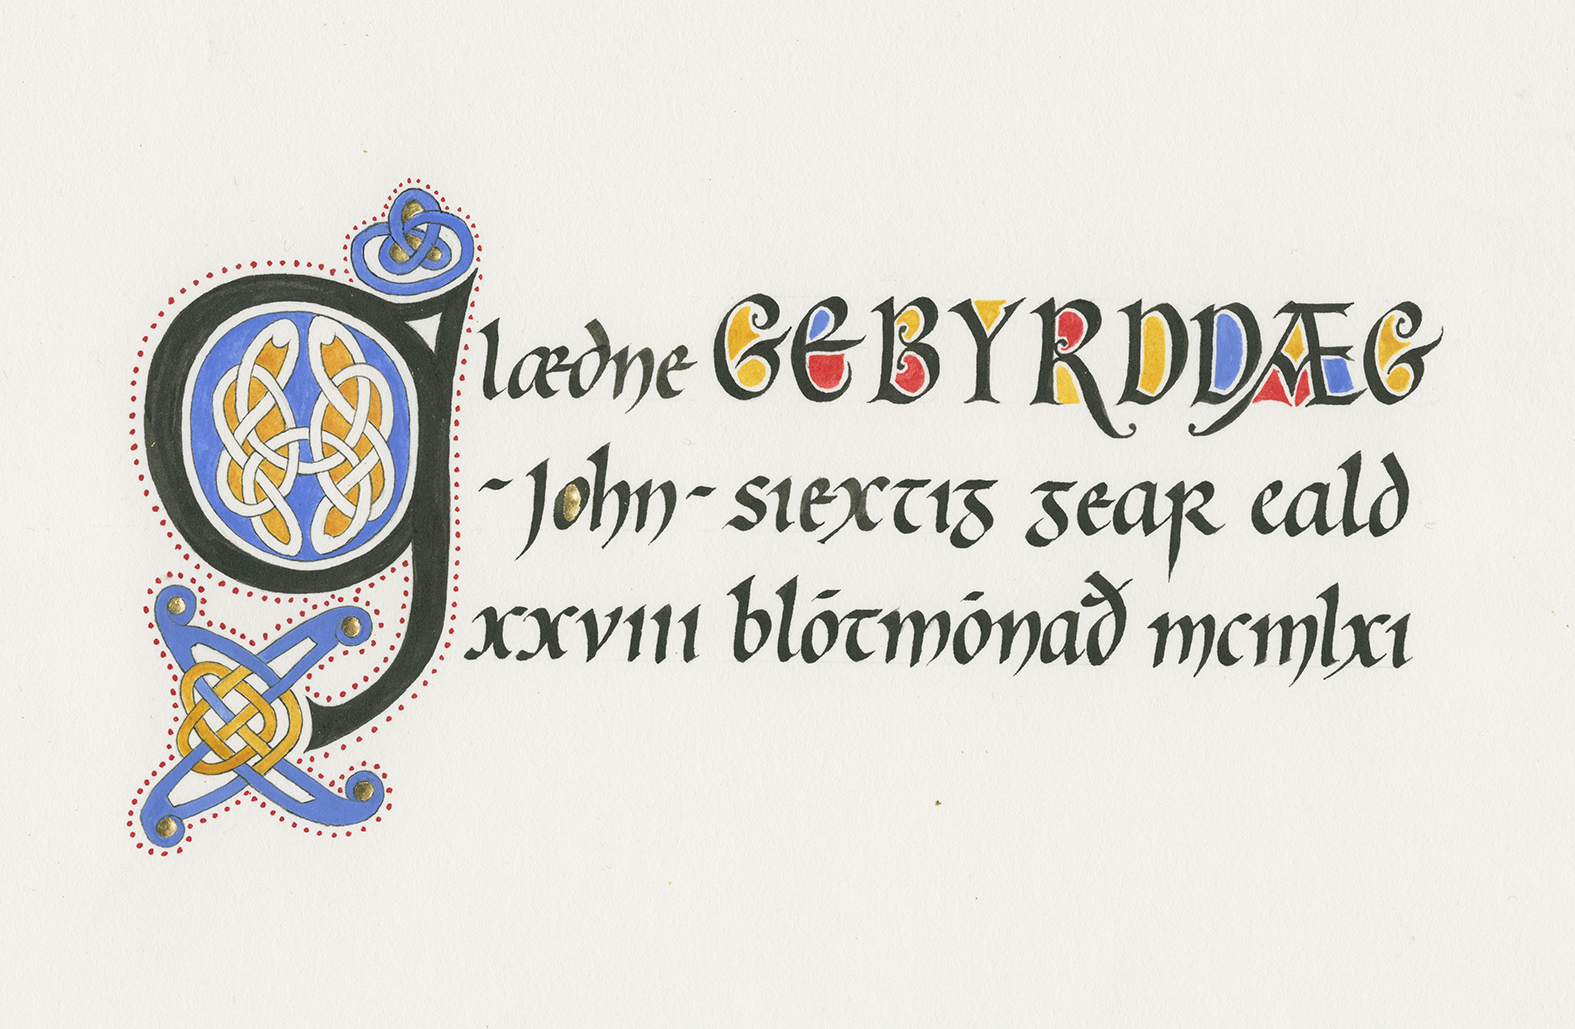 glæðne GEBYRDDÆG
~John~ siextig gear eald
xxviii blótmónað mcmlxi